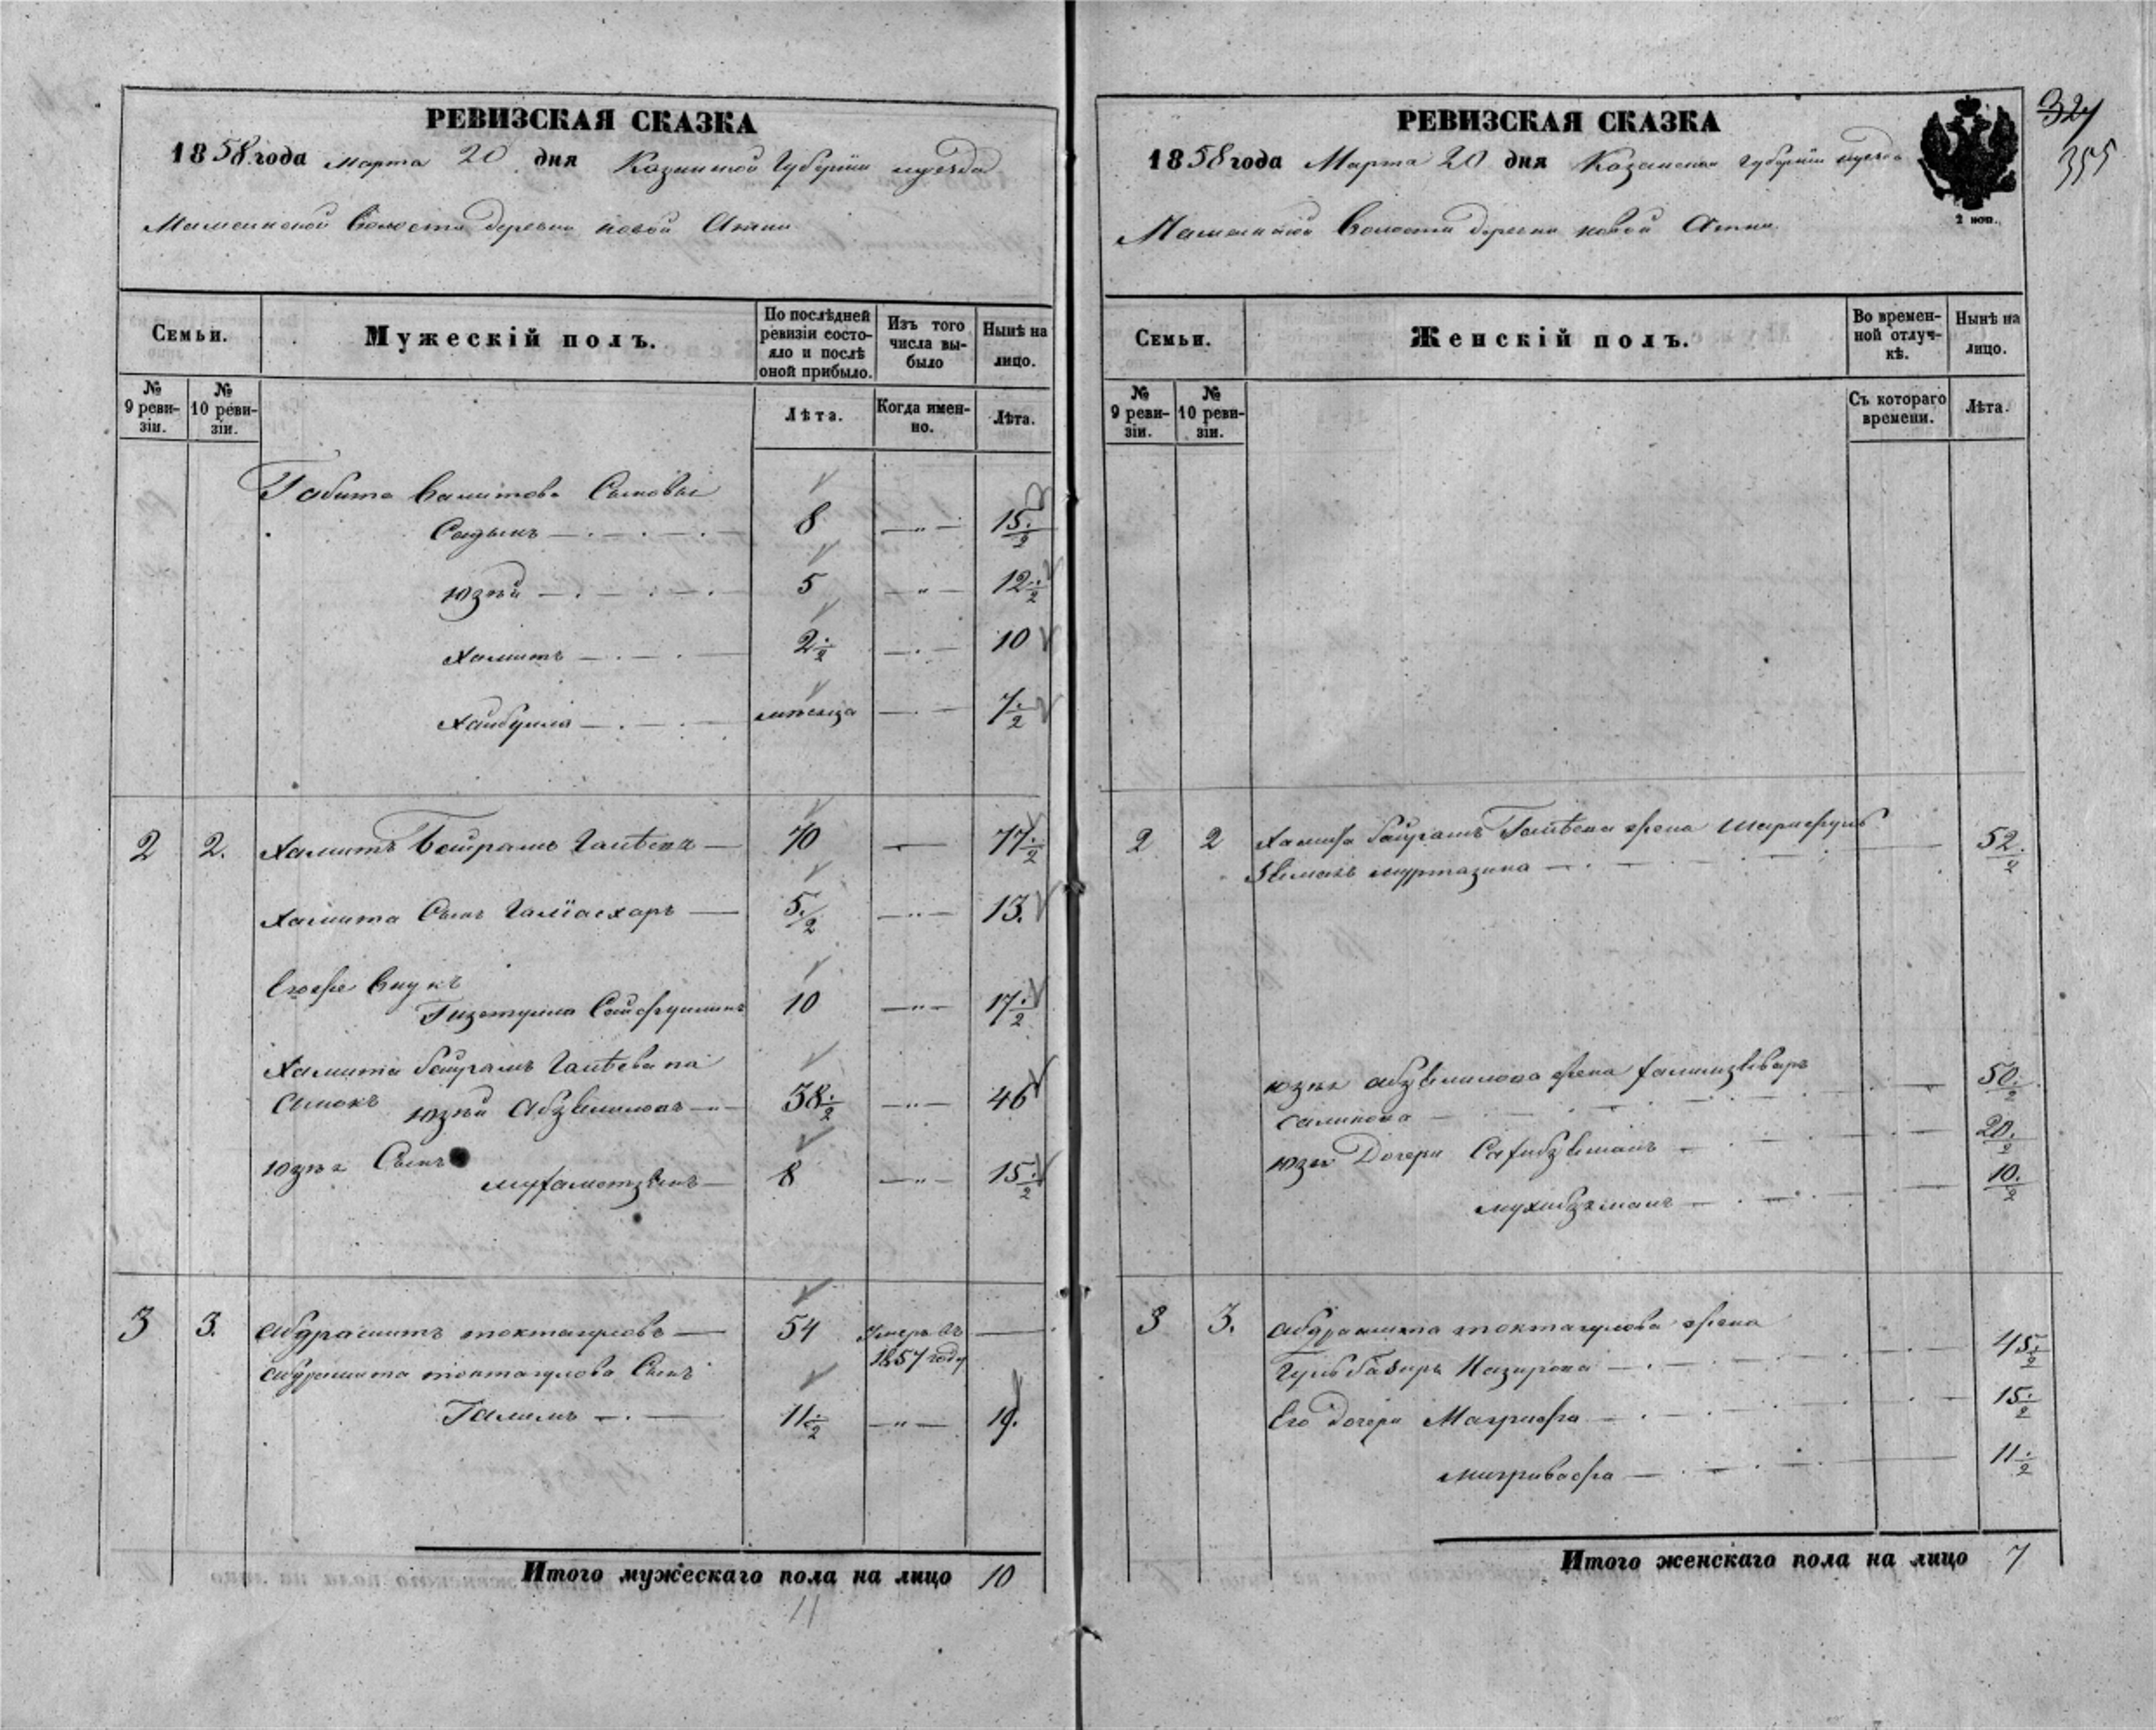 РЕВИЗСКАЯ СКАЗКА
1858 года Марта 20 дня Казанской Губернии и уезда
Мамсинской Волости деревни новой Атни
Семьи.
Мужескій полъ.
По послѣдней ревизіи состояло и послѣ оной прибыло.
Изъ того числа выбыло
Нынѣ на лицо.
№ 9 ревизіи.
№ 10 ревизіи.
Лѣта.
Когда именно.
Лѣта.
Габита Вамитова Сыновья
Садыкъ 8 15 ½
Юзѣй 5 12 ½
Хамитъ 2 ½ 10
Хайбулла мѣсяца 7 ½
2 2. Хамитъ Байрамъ Галѣевъ 70 77 ½
Хамита Сынъ Галіасхаръ 5 ½ 13.
Егоже Внукъ
Гизетулла Сайфуллинъ 10 17 ½
Хамита Байрамъ Галѣева па
сынокъ Юзѣй Абзѣлиловъ 38 ½ 46
Юзѣя Сынъ
Мухаметзянъ 8 15 ½
3 3. Абдрашитъ Токтагуловъ 54 Умеръ въ
1857 году
Абдрашита Токтагулова Сынъ
Галимъ 11 ½ 19.
Итого мужескаго пола на лицо 10
11
РЕВИЗСКАЯ СКАЗКА
1858 года Марта 20 дня Казанской Губернии и уезда
Мамсинской Волости деревни новой Атни
2 коп.
324
355
Семьи.
Женскій полъ.
Во временной отлучкѣ.
Нынѣ на лицо.
№ 9 ревизіи.
№ 10 ревизіи.
Съ котораго времени.
Лѣта.
2 2 Хамита Байрамъ Галѣева жена
Муртазина 52 ½
Юзѣя Абзѣлилова жена
Салихова 50 ½
Юзѣя Дочери 20 ½
10 ½
3 3. Абдрашита Токтагулова жена
Назирова 45 ½
Его дочери Магрифа 15 ½
11 ½
Итого женскаго пола на лицо 7